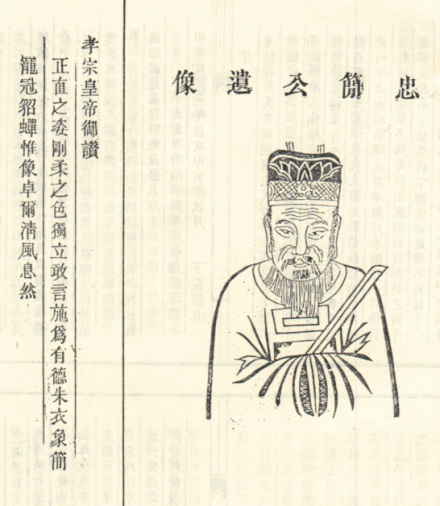 忠簡公遺像
孝宗皇帝御讃
正直之姿剛柔之色獨立敢言施爲有德朱衣象簡
籠冠貂蟬惟像卓爾清風息然